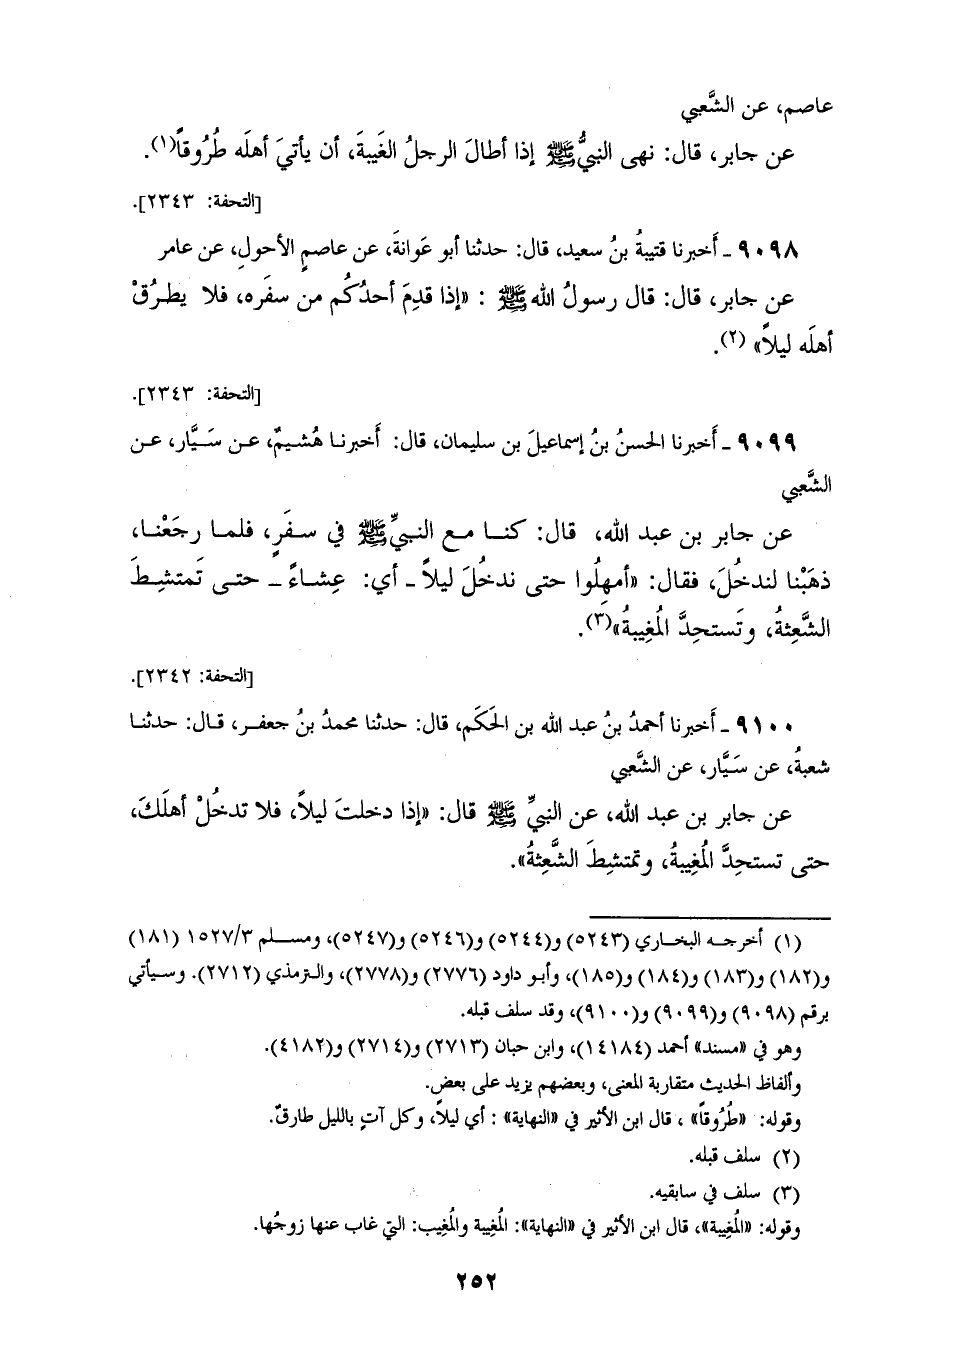 عاصم، عن الشَّعبي
عن جابر، قال: نهى النبيُّ ﷺ إذا أطالَ الرجلُ الغَيبةَ، أن يأتيَ أهلَه طُرُوقاً(١).
[التحفة: ٢٣٤٣].
٩٠٩٨ ـ أَخبرنا قتيبةُ بنُ سعيد، قال: حدثنا أبو عَوانةَ، عن عاصمٍ الأحولِ، عن عامر
عن جابر، قال: قال رسولُ الله ﷺ : «إذا قدِمَ أحدُكُم من سفَره، فلا يطرُقْ
أهلَه ليلاً» (٢).
[التحفة: ٢٣٤٣].
٩٠٩٩ ـ أَخبرنا الحسنُ بنُ إسماعيلَ بن سليمان، قال: أَخبرنا هُشيمٌ، عن سَيَّار، عن
الشَّعبي
عن جابر بن عبد الله، قال: كنا مع النبيِّ ﷺ في سفَرٍ، فلما رجَعْنا،
ذهَبْنا لندخُلَ، فقال: «أمهِلُوا حتى ندخُلَ ليلاً ـ أي: عِشاءً ـ حتى تَمتشِطَ
الشَّعِثةُ، وتَستحِدَّ المُغِيبةُ»(٣).
[التحفة: ٢٣٤٢].
٩١٠٠ ـ أَخبرنا أحمدُ بنُ عبد الله بن الحَكَم، قال: حدثنا محمدُ بنُ جعفر، قال: حدثنا
شعبةُ، عن سَيَّار، عن الشَّعبي
عن جابر بن عبد الله، عن النبيِّ ﷺ قال: «إذا دخلتَ ليلاً، فلا تدخُلْ أهلَكَ،
حتى تستحِدَّ المُغِيبةُ، وتمتشِطَ الشَّعِثةُ».
(١) أخرجه البخاري (٥٢٤٣) و(٥٢٤٤) و(٥٢٤٦) و(٥٢٤٧)، ومسلم ١٥٢٧/٣ (١٨١)
و(١٨٢) و(١٨٣) و(١٨٤) و(١٨٥)، وأبو داود (٢٧٧٦) و(٢٧٧٨)، والترمذي (٢٧١٢). وسيأتي
برقم (٩٠٩٨) و(٩٠٩٩) و(٩١٠٠)، وقد سلف قبله.
وهو في «مسند» أحمد (١٤١٨٤)، وابن حبان (٢٧١٣) و(٢٧١٤) و(٤١٨٢).
وألفاظ الحديث متقاربة المعنى، وبعضهم يزيد على بعض.
وقوله: «طُرُوقاً» ، قال ابن الأثير في «النهاية» : أي ليلاً، وكل آتٍ بالليل طارقٌ.
(٢) سلف قبله.
(٣) سلف في سابقيه.
وقوله: «المُغِيبة»، قال ابن الأثير في «النهاية»: المُغِيبة والمُغِيب: التي غاب عنها زوجُها.
٢٥٢